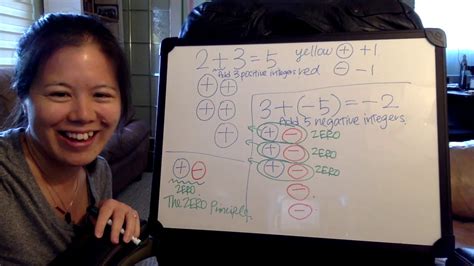 2+3=5
Add 3 positive integers
yellow ⊕ +1
red ⊖ -1
3+(-5)=-2
Add 5 negative integers
⊕ ⊕
⊕ ⊕
⊕
⊕ ⊖ ZERO
⊕ ⊖ ZERO
⊕ ⊖ ZERO
⊖
⊖
⊕ ⊖
ZERO
The ZERO Principle